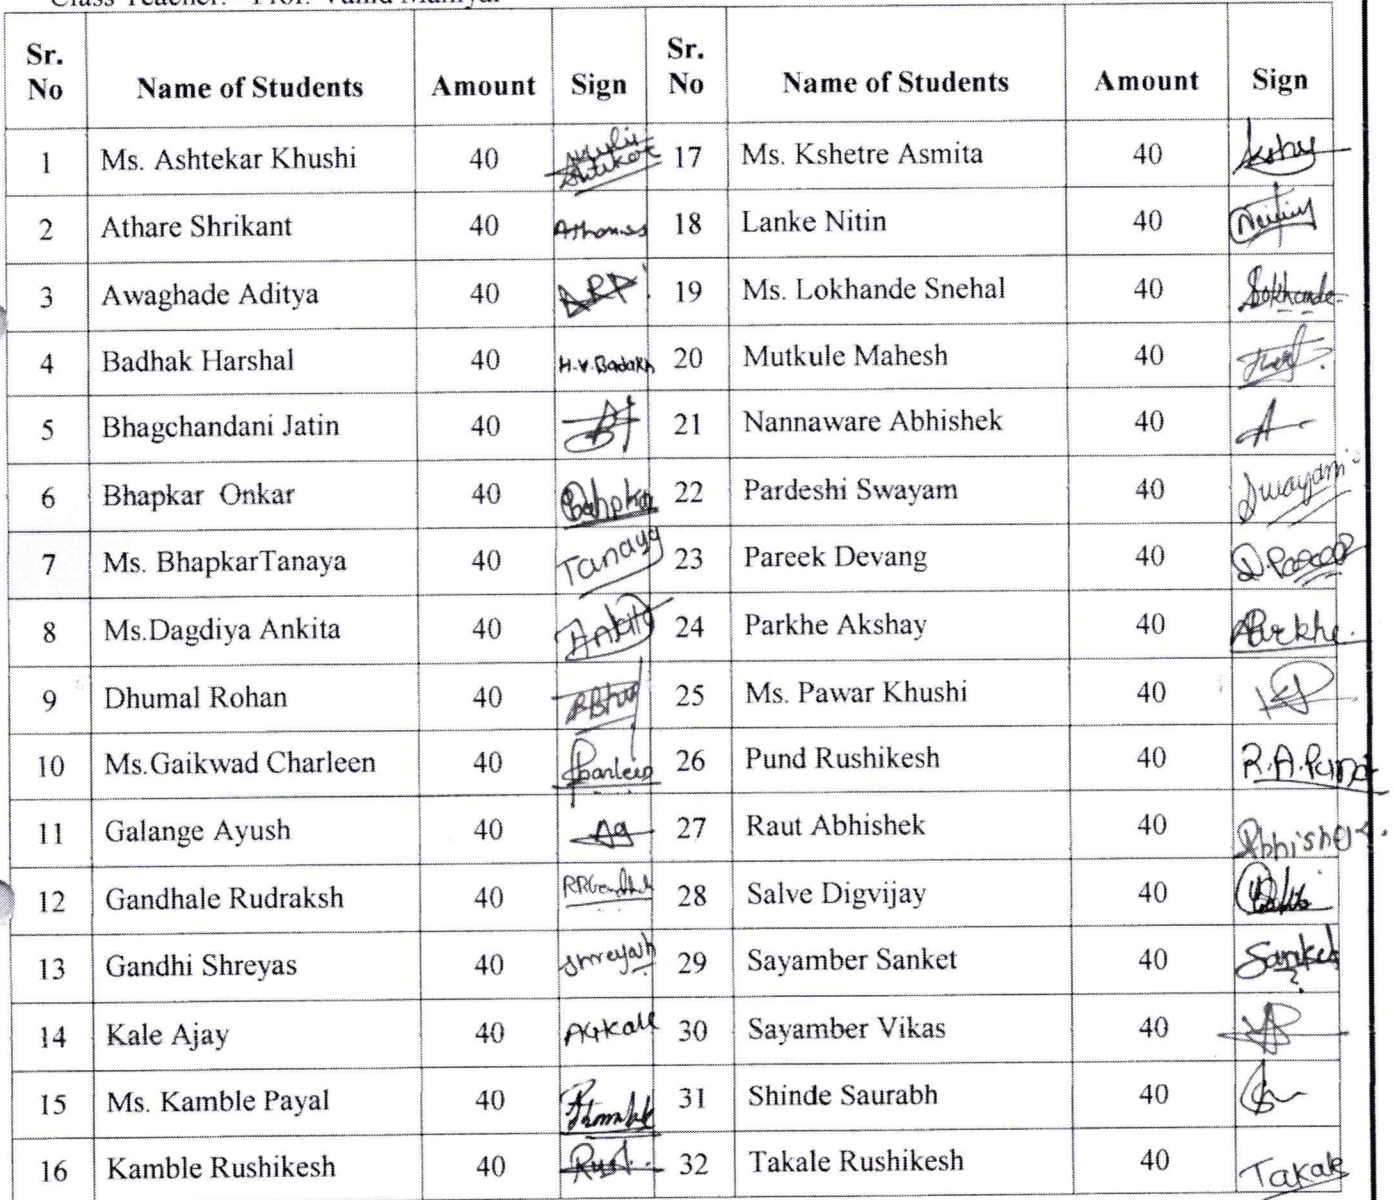 Class Teacher: - Prof.
Sr. No Name of Students Amount Sign Sr. No Name of Students Amount Sign
1 Ms. Ashtekar Khushi 40 17 Ms. Kshetre Asmita 40
2 Athare Shrikant 40 18 Lanke Nitin 40
3 Awaghade Aditya 40 19 Ms. Lokhande Snehal 40 Lokhande
4 Badhak Harshal 40 H.V.Badakh 20 Mutkule Mahesh 40
5 Bhagchandani Jatin 40 21 Nannaware Abhishek 40 A
6 Bhapkar Onkar 40 22 Pardeshi Swayam 40 Swayam
7 Ms. BhapkarTanaya 40 Tanaya 23 Pareek Devang 40
8 Ms.Dagdiya Ankita 40 Ankita 24 Parkhe Akshay 40 Parkhe.
9 Dhumal Rohan 40 25 Ms. Pawar Khushi 40
10 Ms.Gaikwad Charleen 40 Charleen 26 Pund Rushikesh 40 R.A.Pund
11 Galange Ayush 40 AG 27 Raut Abhishek 40 Abhishek.
12 Gandhale Rudraksh 40 28 Salve Digvijay 40
13 Gandhi Shreyas 40 Shreyash 29 Sayamber Sanket 40 Sanket
14 Kale Ajay 40 AGKale 30 Sayamber Vikas 40
15 Ms. Kamble Payal 40 31 Shinde Saurabh 40
16 Kamble Rushikesh 40 32 Takale Rushikesh 40 Takale